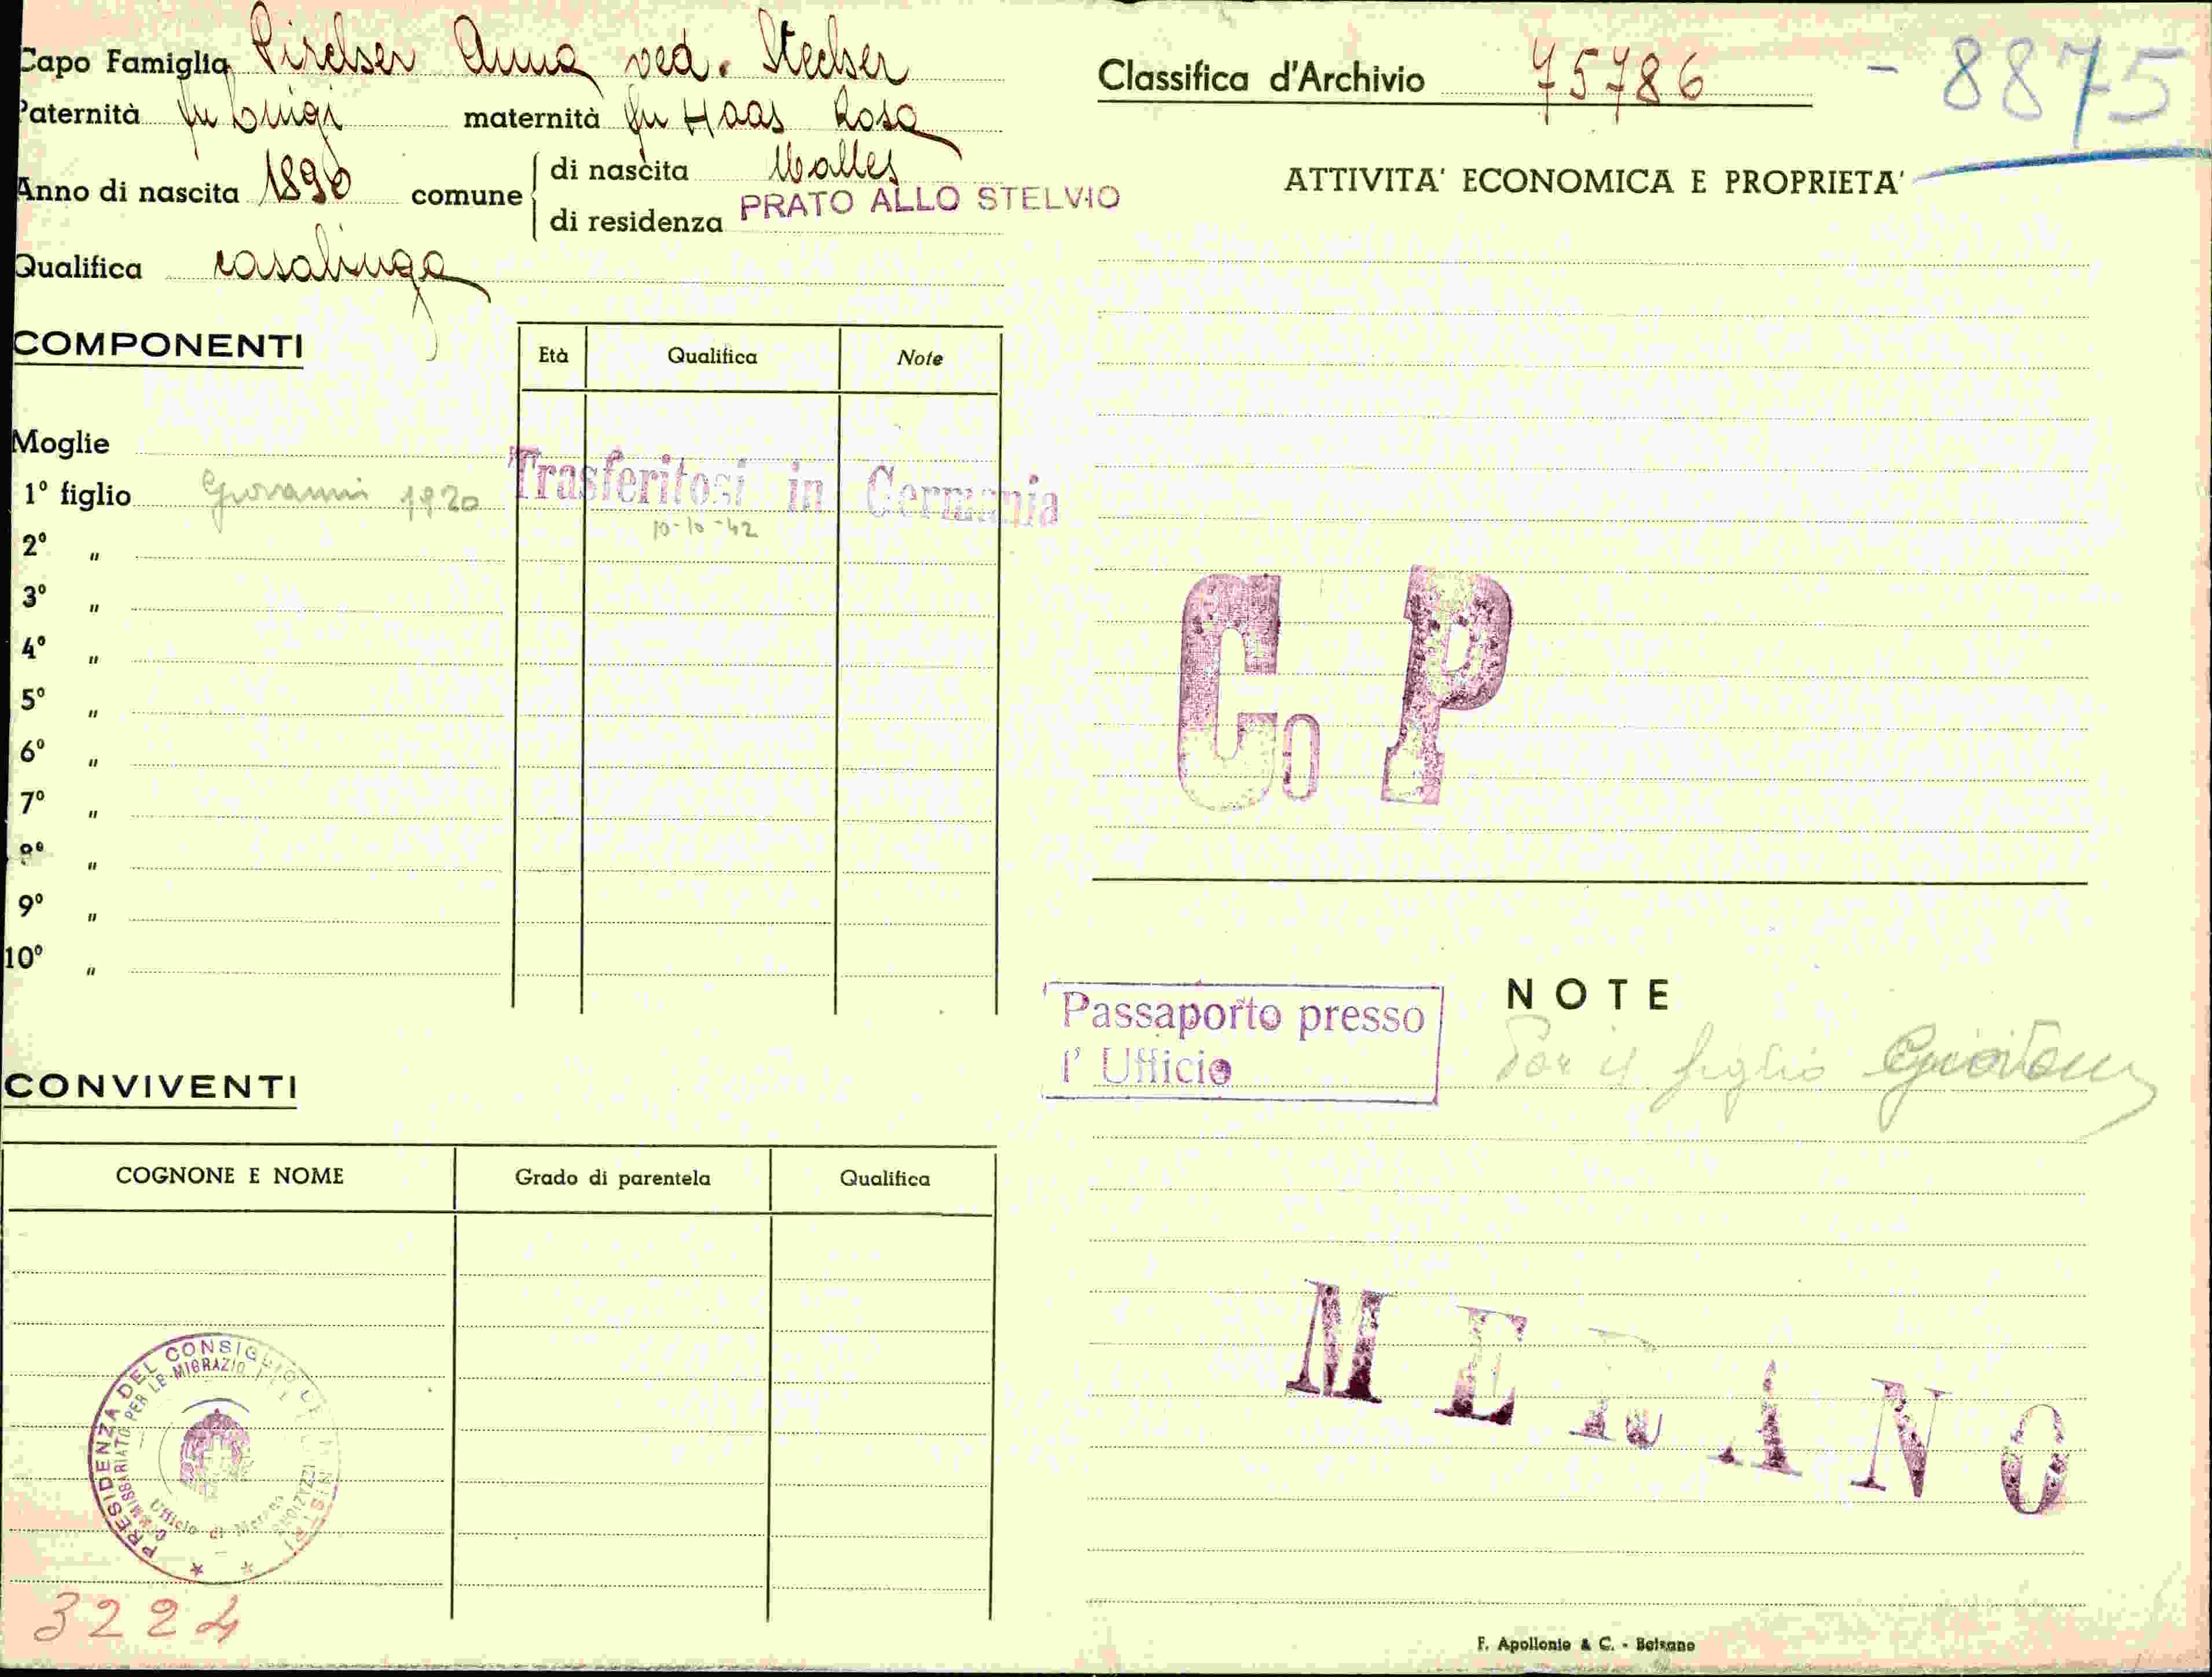 Capo Famiglia Pircher Anna ved. Stecher
Paternità fu Luigi maternità fu Haas Rosa
Anno di nascita 1890 comune di nascita Malles
di residenza PRATO ALLO STELVIO
Qualifica casalinga
COMPONENTI
Età Qualifica Note
Moglie
1° figlio Giovanni 1920 Trasferitosi in Germania
10-10-42
2° "
3° "
4° "
5° "
6° "
7° "
8° "
9° "
10° "
CONVIVENTI
COGNONE E NOME Grado di parentela Qualifica
PRESIDENZA DEL CONSIGLIO DEI MINISTRI
COMMISSARIATO PER LE MIGRAZIO
Ufficio di Merano
3224
Classifica d'Archivio 75786 - 8875
ATTIVITA' ECONOMICA E PROPRIETA'
Co P
NOTE
Passaporto presso
l' Ufficio
Per il figlio Giovanni
MERANO
F. Apollonio & C. - Bolzano